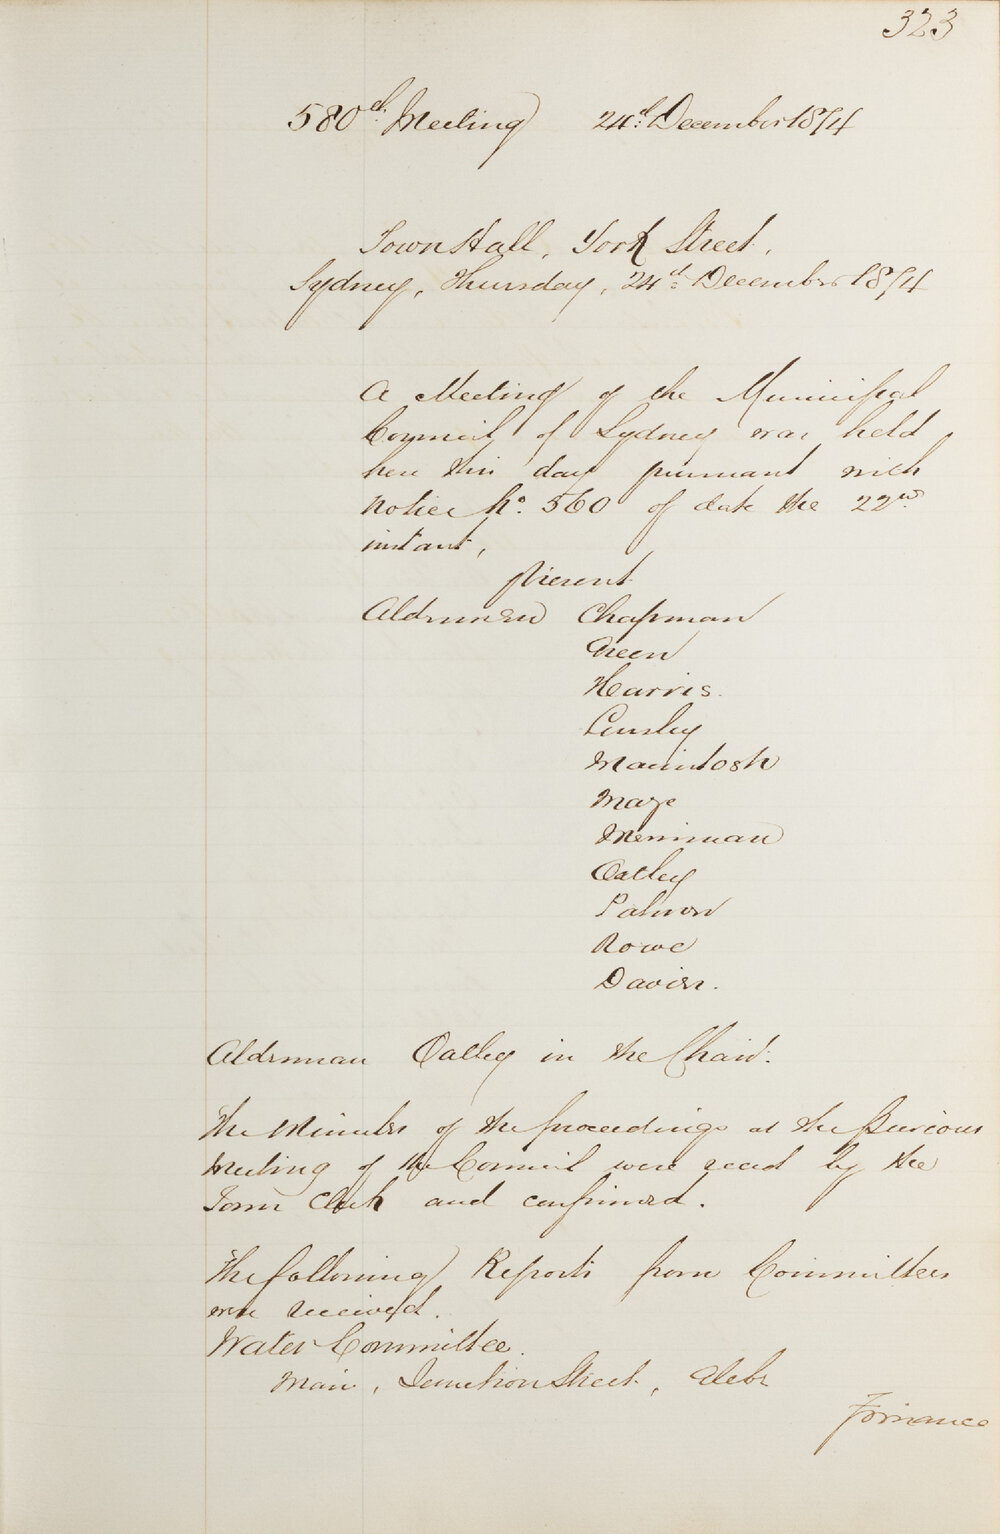 323
580th Meeting 24th December 1874
Town Hall, York Street,
Sydney, Thursday, 24th December 1874
A Meeting of the Municipal
Council of Sydney was held
here this day pursuant with
notice No. 560 of date the 22nd
instant,
present
Aldermen Chapman
Green
Harris.
Linsley
Macintosh
Maze
Merriman
Oatley
Palmer
Rowe
Davies.
Alderman Oatley in the Chair.
The Minutes of the proceedings at the Previous
Meeting of the Council were read by the
Town Clerk and confirmed.
The following Reports from Committees
were received.
Water Committee.
Main, Junction Street, Glebe
Finance